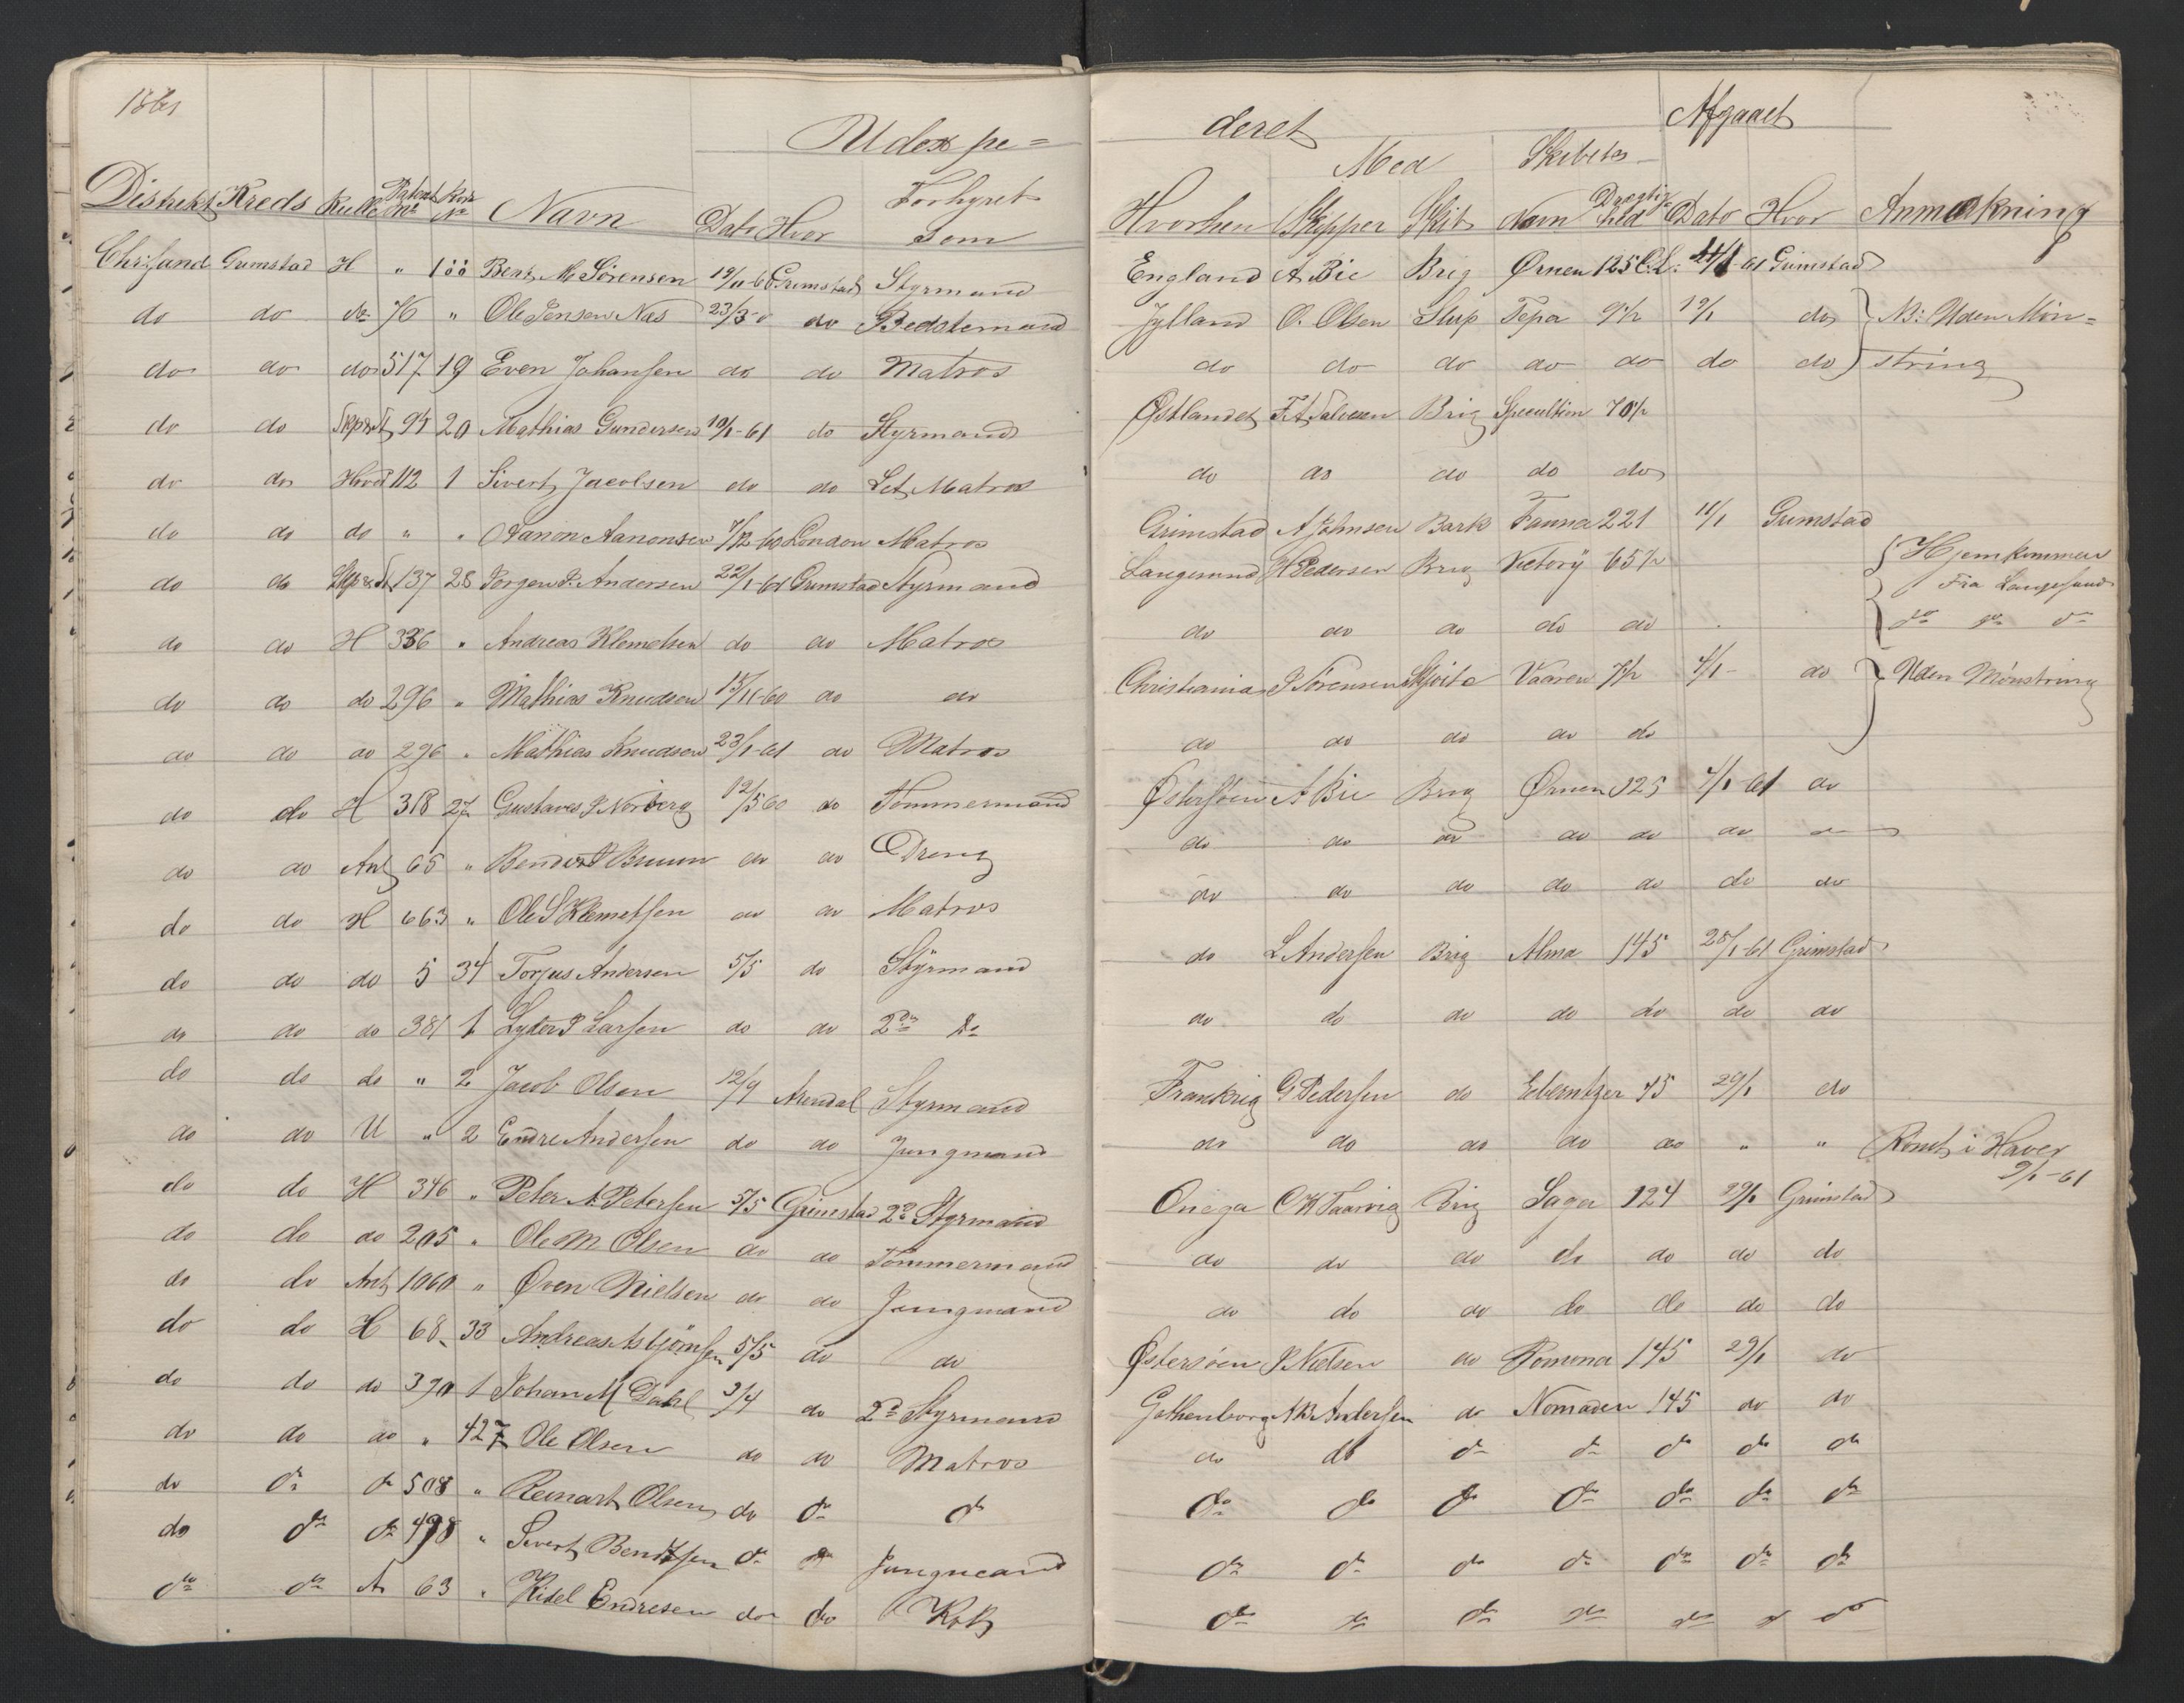 1861
Udexpe=
Distrikt Kreds Rulle Patent No Kons No Navn Dato Hvor Forhyret Som
Chr:sand Grimstad H " 100 Bent M Sørensen 19/11-60 Grimstad Styrmand
do do do 76 " Ole Jensen Næs 23/3-0 do Bedstemand
do do do 517 19 Even Johansen do do Matros
do do 94 20 Mathias Gundersen 10/1-61 do Styrmand
do do Hoved 112 1 Sivert Jacobsen do do Let Matros
do do do " " Aanon Aanonsen 7/12-60 London Matros
do do 137 28 Jørgen P. Andersen 22/1-61 Grimstad Styrmand
do do H 336 " Andreas Klemetsen do do Matros
do do do 296 " Mathias Knudsen 15/11-60 do do
do do do 296 " Mathias Knudsen 23/1-61 do Matros
do do H 318 27 Gustaves P Norberg 12/5 60 do Tømmermand
do do Ant 65 " Bendix P Bruun do do Dreng
do do H 663 " Ole S Klemetsen do do Matros
do do do 5 34 Torjus Andersen 5/5 do Styrmand
do do do 381 1 Lyder P Larsen do do 2den do
do do do " 2 Jacob Olsen 12/9 Arendal Styrmand
do do U " 2 Endre Andersen do do Jungmand
do do H 346 " Peter A. Petersen 5/5 Grimstad 2d Styrmand
do do do 205 " Ole M Olsen do do Tømmermand
do do Ant 1060 " Øven Nielsen do do Jungmand
do do H 68 33 Andreas Asbjørnsen 5/5 do do
do do do 390 1 Johan M Dahl 3/4 do 2d Styrmand
do do do " 427 Ole Olsen do do Matros
do do do 508 " Reinart Olsen do do do
do do do 498 " Sivert Bendtsen do do Jungmand
do do A 63 " Kitel Endresen do do Kok
deret Afgaaet
Med Skibets
Hvorhen Skipper Skib Navn Drægtighed Dato Hvor Anmærkning
England A Bie Brig Ørnen 125 C.L. 24/1-61 Grimstad
Jylland O. Olsen Slup Tepa 9½ 19/1 do } N: Uden Møn=
do do do do do do do } string
Østlandet F. A. Salvesen Brig 70½
do do do do do
Grimstad A Johnsen Bark Fanna 221 11/1 Grimstad
Langesund H Pedersen Brig Victory 65½ { Hjemkommen
Fra Langesund
do do do do do { do do do
Christiania P Sørensen Skjøite Vaaren 7½ 4/1- do } Uden Mønstring
do do do do do
Østersøen A Bie Brig Ørnen 125 4/1-61 do
do do do do do do do
do do do do do do do
do L Andersen Brig Alma 145 28/1-61 Grimstad
do do do do do do do
Frankrig G Pedersen do 45 29/1 do
do do do do do " " Rømt i Haver
9/1-61
Onega O K Taarvig Brig Saga 124 29/1 Grimstad
do do do do do do do
do do do do do do do
Østersøen P Nielsen do Pomona 145 29/1 do
Gothenborg A B Andersen do Nomaden 145 do do
do do do do do do do
do do do do do do do
do do do do do do do
do do do do do do do